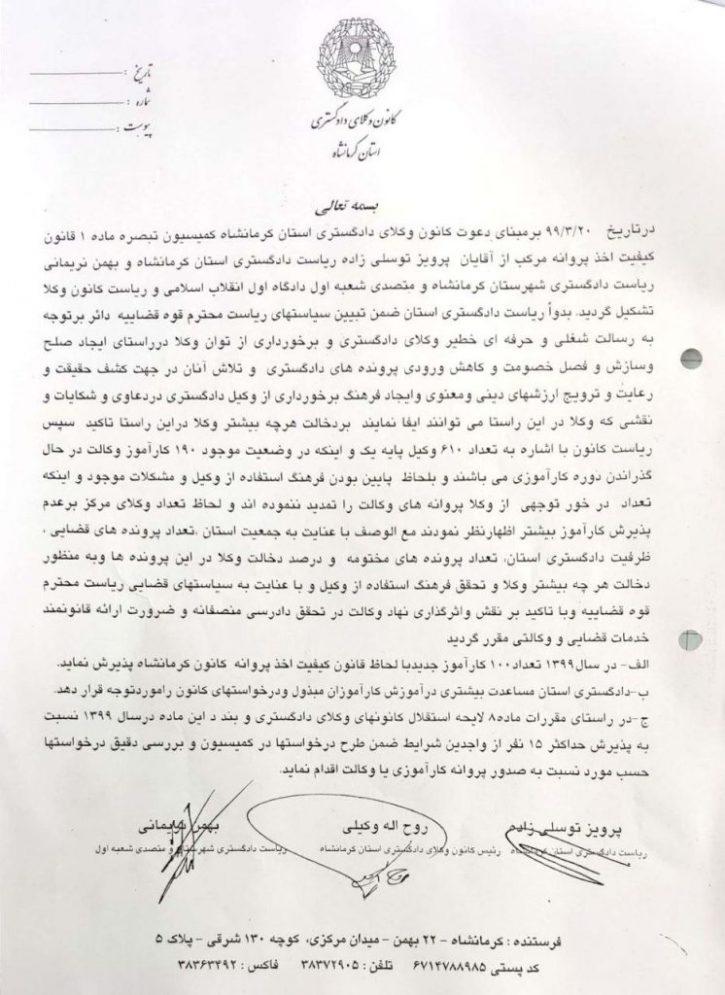 تاریخ :
شماره :
پیوست :
کانون وکلای دادگستری
استان کرمانشاه
بسمه تعالی
درتاریخ ۹۹/۳/۲۰ برمبنای دعوت کانون وکلای دادگستری استان کرمانشاه کمیسیون تبصره ماده ۱ قانون
کیفیت اخذ پروانه مرکب از آقایان پرویز توسلی زاده ریاست دادگستری استان کرمانشاه و بهمن نریمانی
ریاست دادگستری شهرستان کرمانشاه و متصدی شعبه اول دادگاه اول انقلاب اسلامی و ریاست کانون وکلا
تشکیل گردید. بدواً ریاست دادگستری استان ضمن تبیین سیاستهای ریاست محترم قوه قضاییه دائر برتوجه
به رسالت شغلی و حرفه ای خطیر وکلای دادگستری و برخورداری از توان وکلا درراستای ایجاد صلح
وسازش و فصل خصومت و کاهش ورودی پرونده های دادگستری و تلاش آنان در جهت کشف حقیقت و
رعایت و ترویج ارزشهای دینی ومعنوی وایجاد فرهنگ برخورداری از وکیل دادگستری دردعاوی و شکایات و
نقشی که وکلا در این راستا می توانند ایفا نمایند بردخالت هرچه بیشتر وکلا دراین راستا تاکید سپس
ریاست کانون با اشاره به تعداد ۶۱۰ وکیل پایه یک و اینکه در وضعیت موجود ۱۹۰ کارآموز وکالت در حال
گذراندن دوره کارآموزی می باشند و بلحاظ پایین بودن فرهنگ استفاده از وکیل و مشکلات موجود و اینکه
تعداد در خور توجهی از وکلا پروانه های وکالت را تمدید ننموده اند و لحاظ تعداد وکلای مرکز برعدم
پذیرش کارآموز بیشتر اظهارنظر نمودند مع الوصف با عنایت به جمعیت استان ،تعداد پرونده های قضایی ،
ظرفیت دادگستری استان، تعداد پرونده های مختومه و درصد دخالت وکلا در این پرونده ها وبه منظور
دخالت هر چه بیشتر وکلا و تحقق فرهنگ استفاده از وکیل و با عنایت به سیاستهای قضایی ریاست محترم
قوه قضاییه وبا تاکید بر نقش واثرگذاری نهاد وکالت در تحقق دادرسی منصفانه و ضرورت ارائه قانونمند
خدمات قضایی و وکالتی مقرر گردید
الف- در سال۱۳۹۹ تعداد۱۰۰ کارآموز جدیدبا لحاظ قانون کیفیت اخذ پروانه کانون کرمانشاه پذیرش نماید.
ب-دادگستری استان مساعدت بیشتری درآموزش کارآموزان مبذول ودرخواستهای کانون راموردتوجه قرار دهد.
ج-در راستای مقررات ماده۸ لایحه استقلال کانونهای وکلای دادگستری و بند د این ماده درسال ۱۳۹۹ نسبت
به پذیرش حداکثر ۱۵ نفر از واجدین شرایط ضمن طرح درخواستها در کمیسیون و بررسی دقیق درخواستها
حسب مورد نسبت به صدور پروانه کارآموزی یا وکالت اقدام نماید.
پرویز توسلی زاده روح اله وکیلی بهمن نریمانی
ریاست دادگستری استان کرمانشاه رئیس کانون وکلای دادگستری استان کرمانشاه ریاست دادگستری شهرستان و متصدی شعبه اول
فرستنده : کرمانشاه - ۲۲ بهمن - میدان مرکزی، کوچه ۱۳۰ شرقی - پلاک ۵
کد پستی ۶۷۱۴۷۸۸۹۸۵ تلفن : ۳۸۳۷۲۹۰۵ فاکس : ۳۸۳۶۳۴۹۲